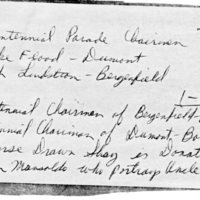 entennial Parade Chairmen
ke Flood - Dumont
h Lindstrom - Bergenfield
1-
tennial Chairman of Bergenfield
nnial Chairman of Dumont - Bo
rse Drawn Shay is Donat
n Mansoldo who portrays Uncle